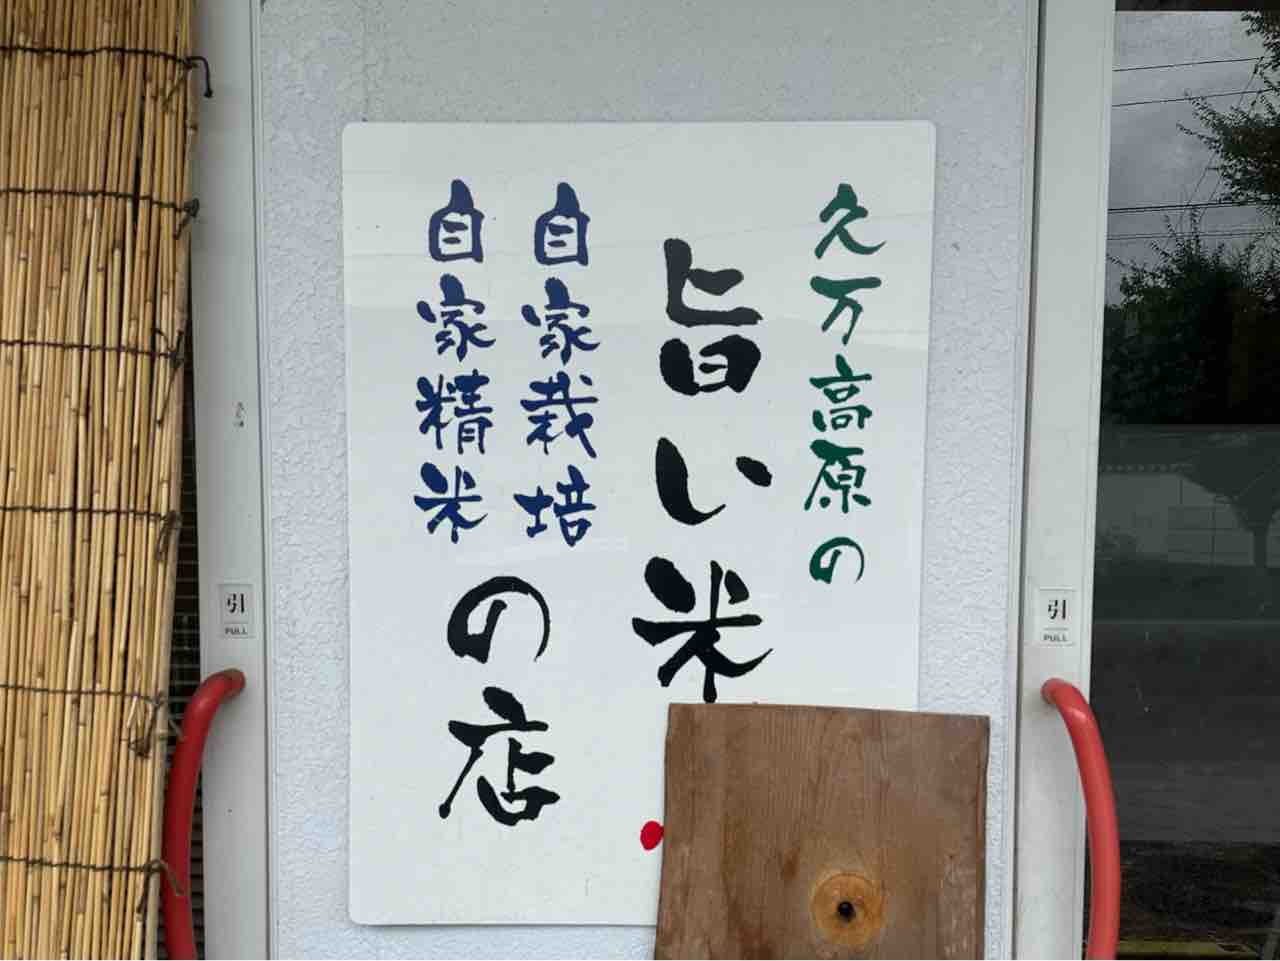 久万高原の
旨い米
自家栽培
自家精米
の店
引
PULL
引
PULL